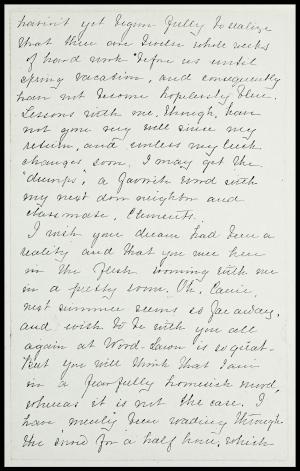 haven't yet begun fully to realize
that there are twelve whole weeks
of hard work before us until
spring vacation, and consequently
have not become hopelessly blue.
Lessons with me, though, have
not gone very well since my
return, and unless my luck
changes soon, I may get the
"dumps", a favorite word with
my next door neighbor and
classmate, Clements.
I wish your dream had been a
reality and that you were here
in the flesh rooming with me
in a pretty room. Oh, Carrie,
next summer seems so far away,
and wish to be with you all
again at Wood-Lawn is so great.
But you will think that I am
in a fearfully homesick mood,
whereas it is not the case. I
have merely been wading through
the snow for a half hour, which